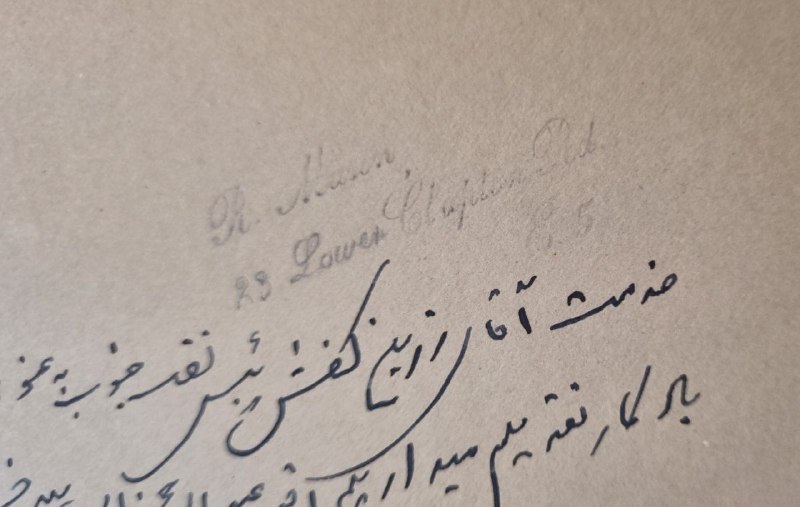 R. Mason,
23 Lower Clapton Rd.
E. 5
خدمت آقای زرین کفش رئیس نقد جنوب به عنو
یادگار تقدیم میداریم